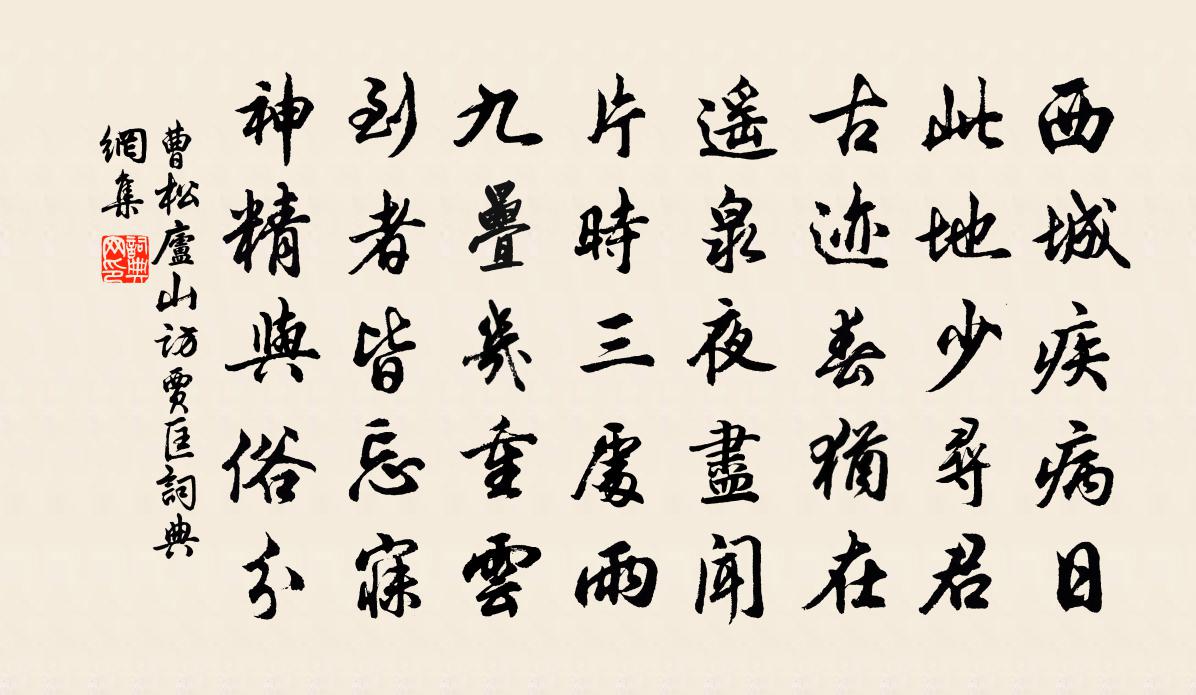 西城疾病日
此地少尋君
古迹春猶在
遥泉夜盡聞
片時三處雨
九疊幾重雲
到者皆忘寐
神精與俗分
曹松廬山訪賈匡詞典
網集
詞典
网印